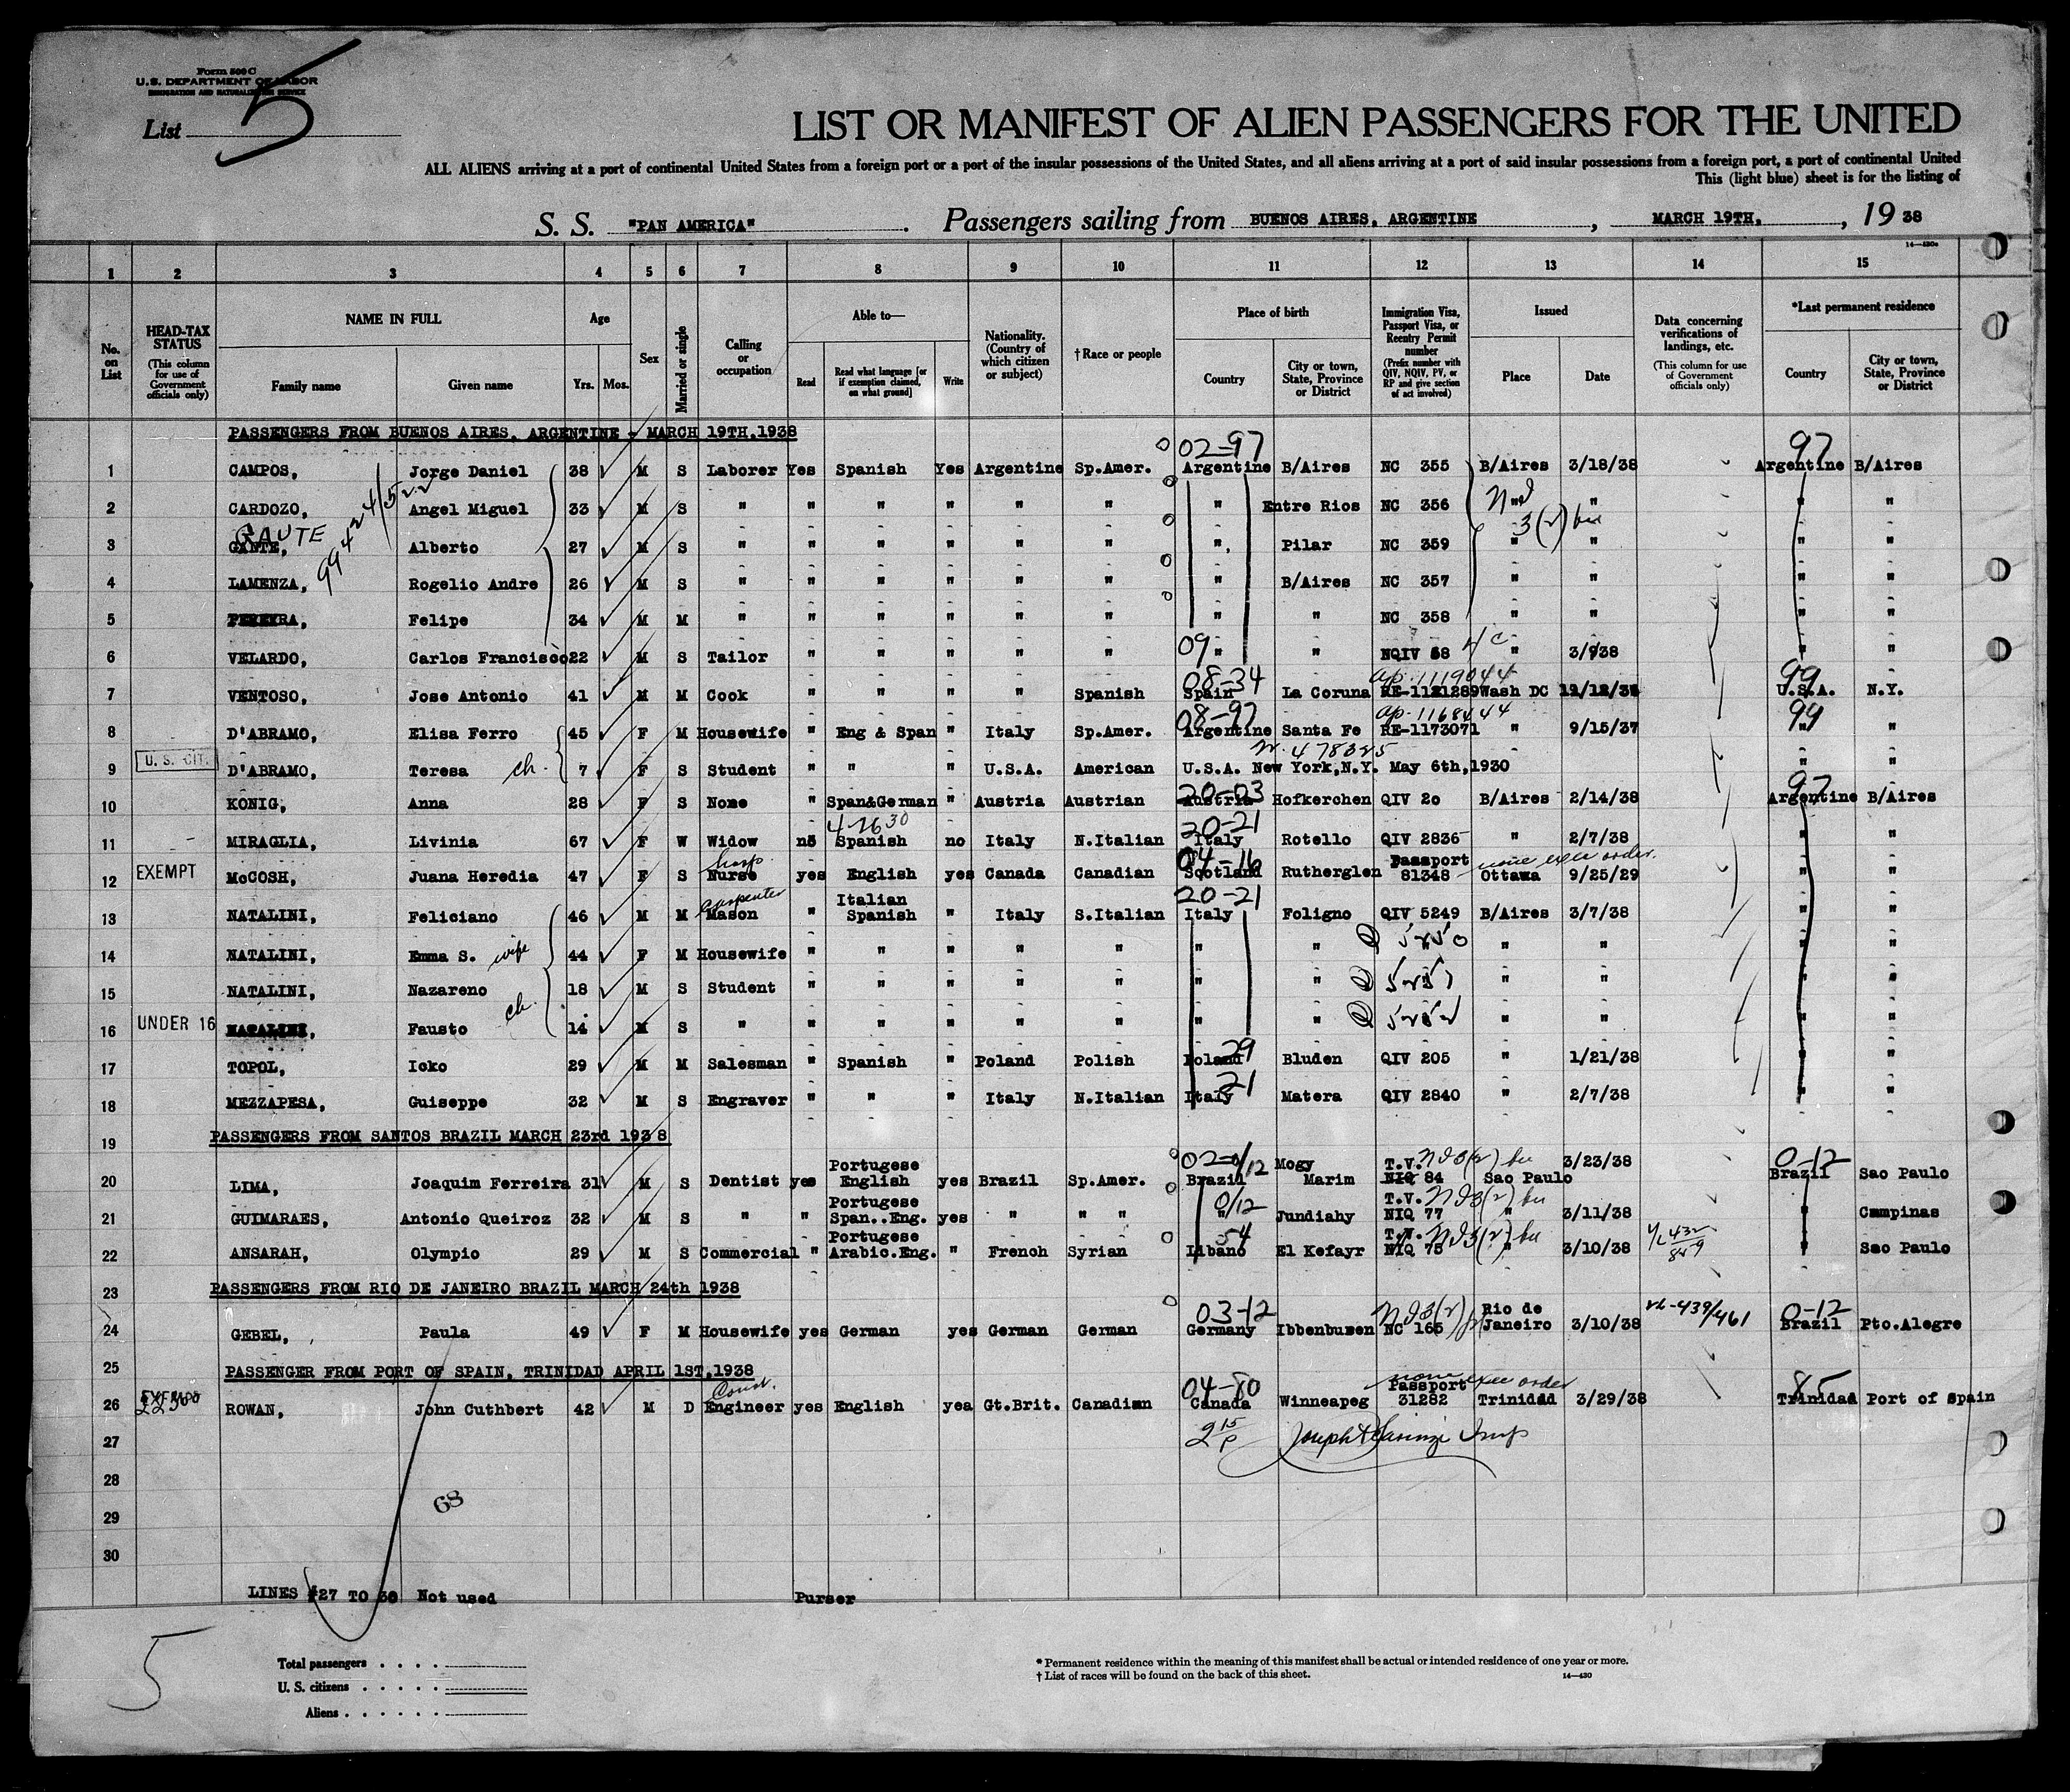 Form 500 C
U.S. DEPARTMENT OF LABOR
IMMIGRATION AND NATURALIZATION SERVICE
List 5
LIST OR MANIFEST OF ALIEN PASSENGERS FOR THE UNITED
ALL ALIENS arriving at a port of continental United States from a foreign port or a port of the insular possessions of the United States, and all aliens arriving at a port of said insular possessions from a foreign port, a port of continental United
This (light blue) sheet is for the listing of
S. S. "PAN AMERICA". Passengers sailing from BUENOS AIRES, ARGENTINE, MARCH 19TH, 1938
14—430a
1 2 3 4 5 6 7 8 9 10 11 12 13 14 15
No. on List
HEAD-TAX STATUS (This column for use of Government officials only)
NAME IN FULL Family name Given name
Age Yrs. Mos.
Sex
Married or single
Calling or occupation
Able to— Read Read what language [or if exemption claimed, on what ground] Write
Nationality. (Country of which citizen or subject)
†Race or people
Place of birth Country City or town, State, Province or District
Immigration Visa, Passport Visa, or Reentry Permit number (Prefix number with QIV, NQIV, PV, or RP and give section of act involved)
Issued Place Date
Data concerning verifications of landings, etc. (This column for use of Government officials only)
*Last permanent residence Country City or town, State, Province or District
PASSENGERS FROM BUENOS AIRES, ARGENTINE - MARCH 19TH, 1938
02-97 97
1 CAMPOS, Jorge Daniel 38 M S Laborer Yes Spanish Yes Argentine Sp.Amer. Argentine B/Aires NC 355 B/Aires 3/18/38 Argentine B/Aires
2 CARDOZO, Angel Miguel 33 M S " " " " " " " Entre Rios NC 356 " " " "
GAUTE 3(2)
3 GANTE, Alberto 27 M S " " " " " " " Pilar NC 359 " " " "
4 LAMENZA, Rogelio Andre 26 M S " " " " " " " B/Aires NC 357 " " " "
5 PEREYRA, Felipe 34 M M " " " " " " " " NC 358 " " " "
09
6 VELARDO, Carlos Francisco 22 M S Tailor " " " " " " " NQIV 68 " 3/9/38 " "
08-34 ap. 1119044 99
7 VENTOSO, Jose Antonio 41 M M Cook " " " " Spanish Spain La Coruna RE-1121289 Wash DC U.S.A. N.Y.
08-97 ap. 1168444 99
8 D'ABRAMO, Elisa Ferro 45 F M Housewife " Eng & Span " Italy Sp.Amer. Argentine Santa Fe RE-1173071 " 9/15/37 " "
478325
9 U. S. CIT. D'ABRAMO, Teresa ch. 7 F S Student " " " U.S.A. American U.S.A. New York,N.Y. May 6th,1930 " "
20-03 97
10 KONIG, Anna 28 F S None " Span&German " Austria Austrian Austria Hofkerchen QIV 20 B/Aires 2/14/38 Argentine B/Aires
20-21
11 MIRAGLIA, Livinia 67 F W Widow no Spanish no Italy N.Italian Italy Rotello QIV 2836 " 2/7/38 " "
hosp. 04-16 Passport none exec order.
12 EXEMPT McCOSH, Juana Heredia 47 F S Nurse yes English yes Canada Canadian Scotland Rutherglen 81348 Ottawa 9/25/29 " "
carpenter Italian 20-21
13 NATALINI, Feliciano 46 M M Mason " Spanish " Italy S.Italian Italy Foligno QIV 5249 B/Aires 3/7/38 " "
14 NATALINI, Emma S. wife 44 F M Housewife " " " " " " " 5250 " " " "
15 NATALINI, Nazareno 18 M S Student " " " " " " " 5251 " " " "
ch.
16 UNDER 16 NATALINI, Fausto 14 M S " " " " " " " " 5252 " " " "
29
17 TOPOL, Icko 29 M M Salesman " Spanish " Poland Polish Poland Bluden QIV 205 " 1/21/38 " "
21
18 MEZZAPESA, Guiseppe 32 M S Engraver " " " Italy N.Italian Italy Matera QIV 2840 " 2/7/38 " "
19 PASSENGERS FROM SANTOS BRAZIL MARCH 23rd 1938
Portugese Mogy T.V. 3(2) 3/23/38 0-12
20 LIMA, Joaquim Ferreira 31 M S Dentist yes English yes Brazil Sp.Amer. Brazil Marim NIQ 84 Sao Paulo Brazil Sao Paulo
Portugese 0/12 T.V. 3(2)
21 GUIMARAES, Antonio Queiroz 32 M S " " Span..Eng. yes " " " " Jundiahy NIQ 77 " 3/11/38 " Campinas
Portugese 54 T.V. 3(2)
22 ANSARAH, Olympio 29 M S Commercial " Arabic.Eng. " French Syrian Libano El Kefayr NIQ 75 " 3/10/38 " Sao Paulo
23 PASSENGERS FROM RIO DE JANEIRO BRAZIL MARCH 24th 1938
03-12 3(2) Rio de 0-12
24 GEBEL, Paula 49 F M Housewife yes German yes German German Germany Ibbenburen NC 165 Janeiro 3/10/38 439/461 Brazil Pto.Alegre
25 PASSENGER FROM PORT OF SPAIN, TRINIDAD APRIL 1ST,1938
04-80 Passport none exec order 85
26 ROWAN, John Cuthbert 42 M D Engineer yes English yea Gt.Brit. Canadian Canada Winneapeg 31282 Trinidad 3/29/38 Trinidad Port of Spain
27
28
68
29
30
LINES #27 TO 30 Not used Purser
5
Total passengers
U. S. citizens
Aliens
* Permanent residence within the meaning of this manifest shall be actual or intended residence of one year or more.
† List of races will be found on the back of this sheet. 14—430